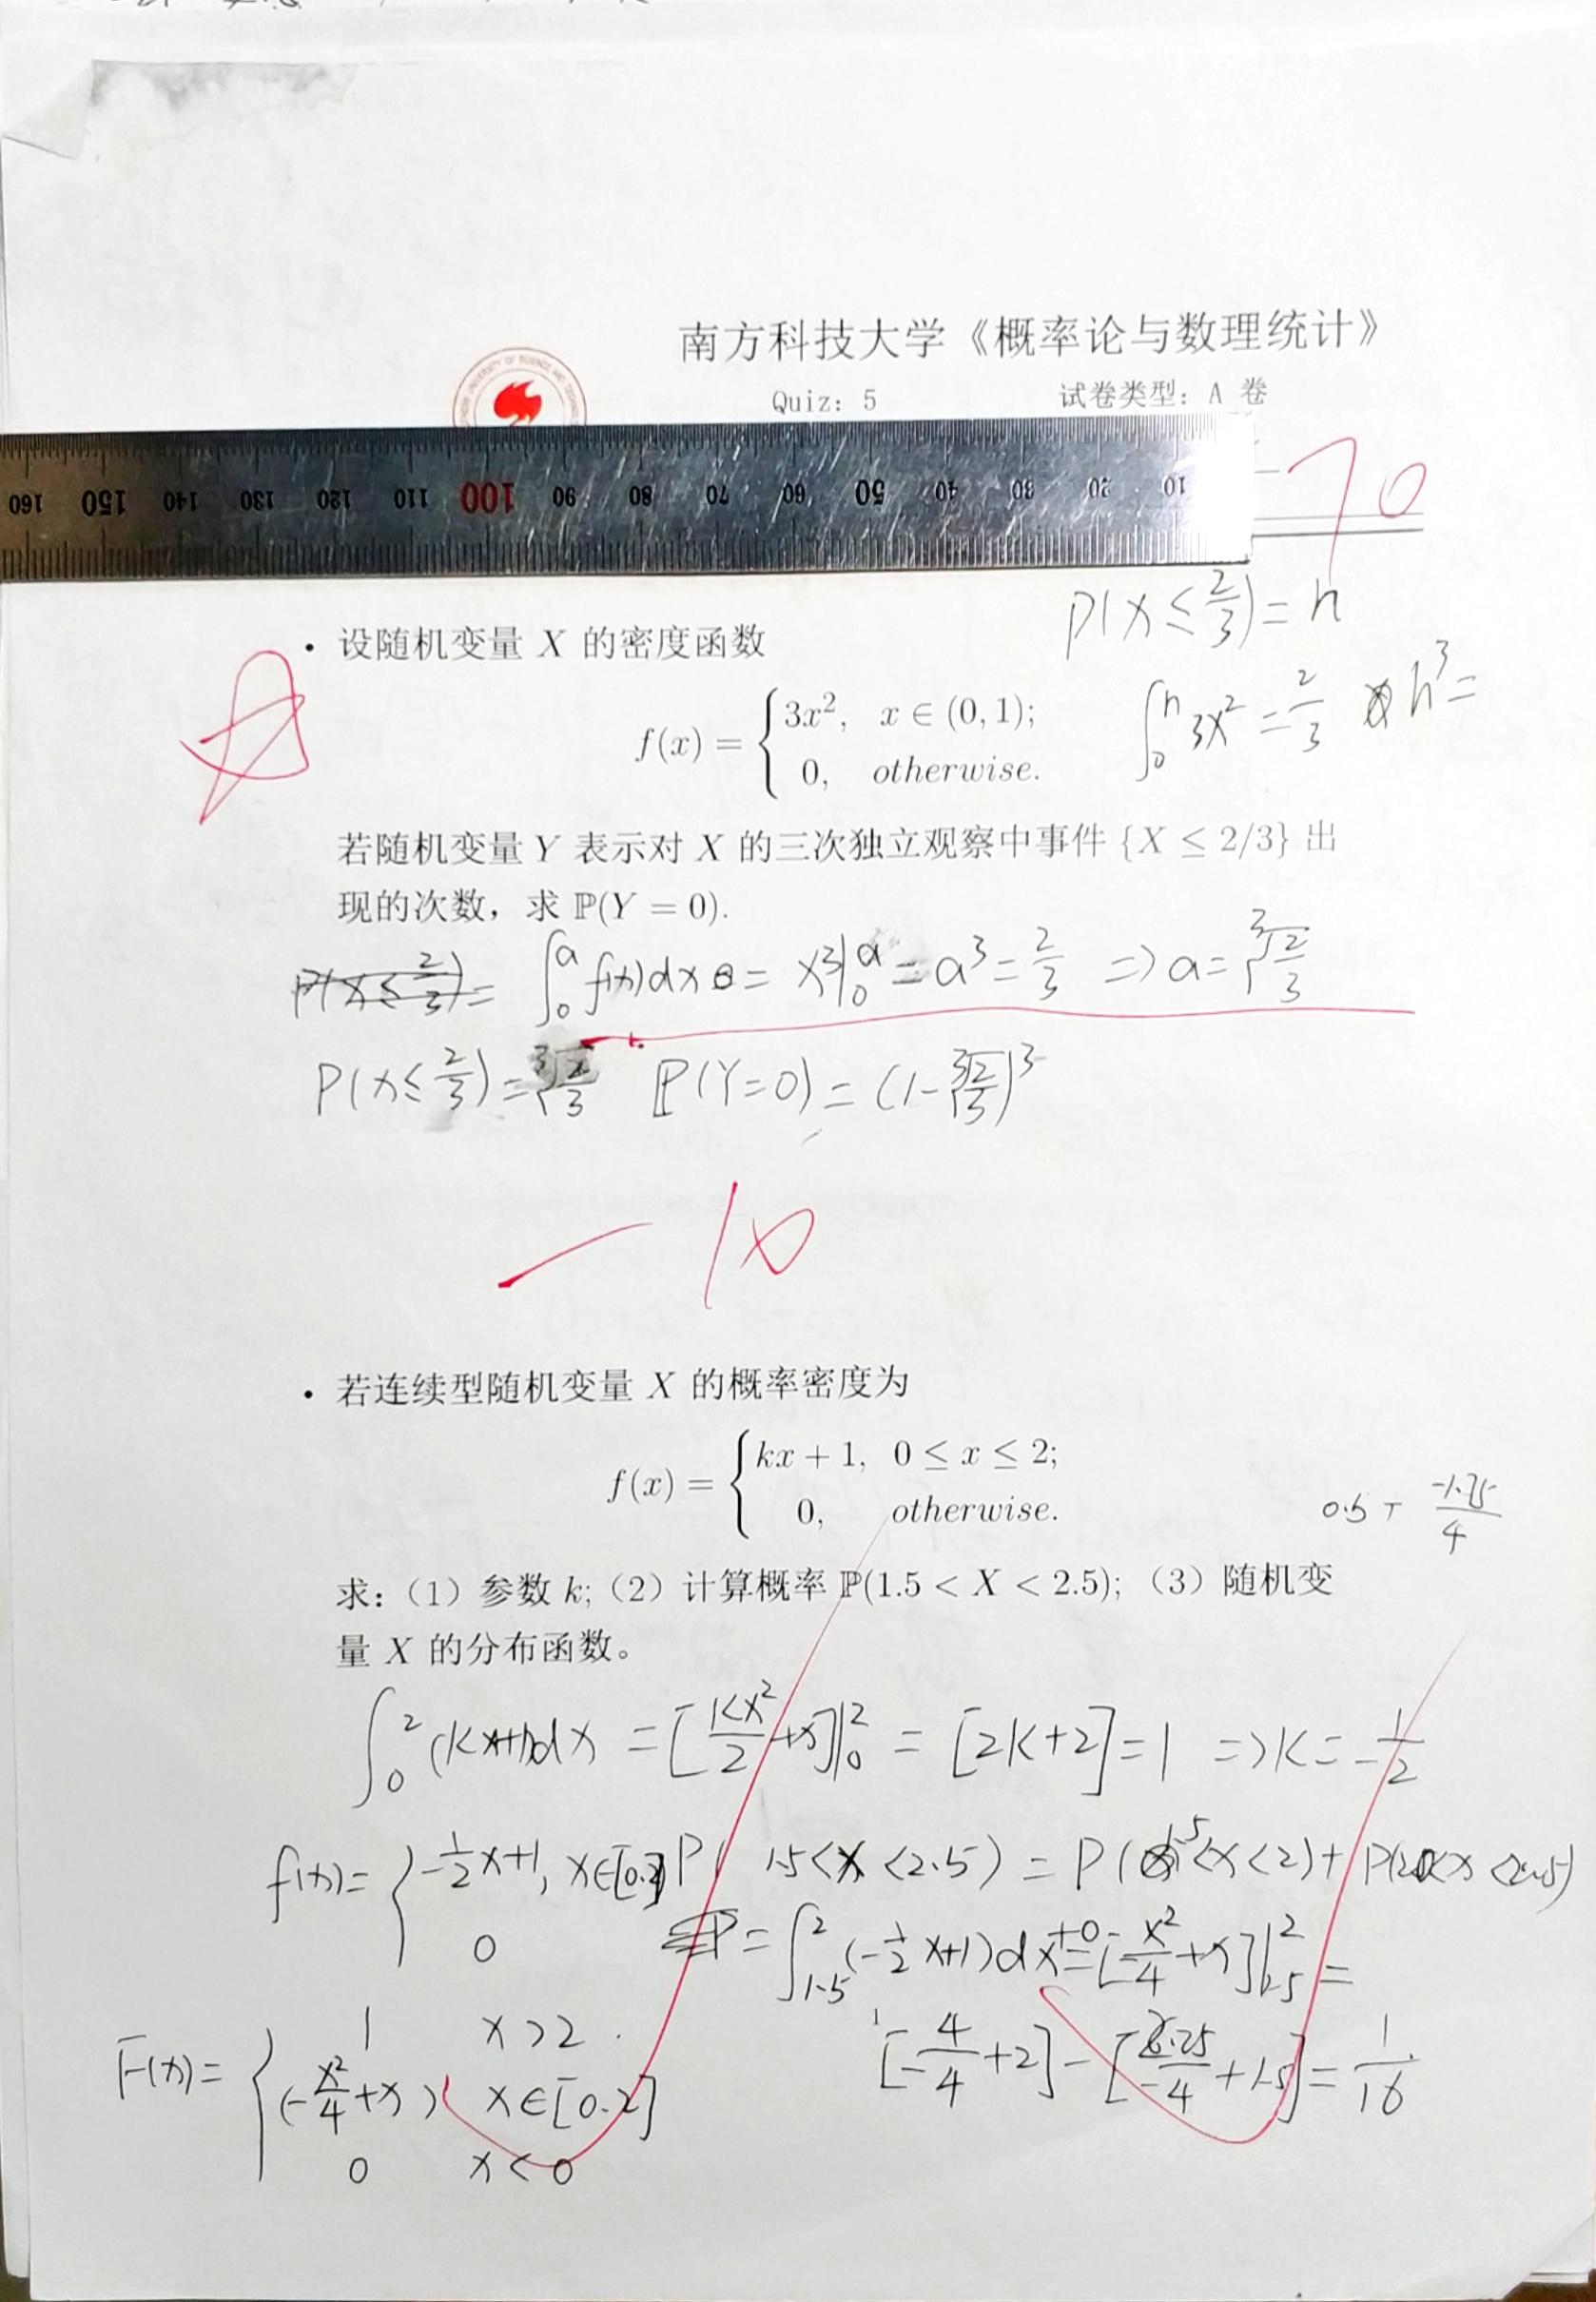 南方科技大学《概率论与数理统计》
Quiz: 5 试卷类型: A 卷
160 150 140 130 120 110 100 90 80 70 60 50 40 30 20 10
70
P(X ≤ 2/3) = n
• 设随机变量 X 的密度函数
f(x) = { 3x², x ∈ (0, 1);
0, otherwise.
∫₀ⁿ 3x² = 2/3 n³ =
若随机变量 Y 表示对 X 的三次独立观察中事件 {X ≤ 2/3} 出
现的次数，求 ℙ(Y = 0).
P(X ≤ 2/3) = ∫₀ᵃ f(x)dx = x³|₀ᵃ = a³ = 2/3 => a = ³√(2/3)
P(X ≤ 2/3) = ³√(2/3) ℙ(Y=0) = (1-³√(2/3))³
-10
• 若连续型随机变量 X 的概率密度为
f(x) = { kx + 1, 0 ≤ x ≤ 2;
0, otherwise.
0.5 + -1.75/4
求:（1）参数 k;（2）计算概率 ℙ(1.5 < X < 2.5);（3）随机变
量 X 的分布函数。
∫₀² (kx+1)dx = [kx²/2 + x]|₀² = [2k+2] = 1 => k = -1/2
f(x) = { -1/2x+1, x∈[0.2] P( 1.5<X<2.5) = P(1.5<X<2) + P(2<X<2.5)
0
= ∫₁.₅² (-1/2x+1)dx+0 = [-x²/4+x]|₁.₅² =
[-4/4+2] - [2.25/-4+1.5] = 1/16
F(x) = { 1 x>2
(-x²/4+x) x∈[0.2]
0 x<0